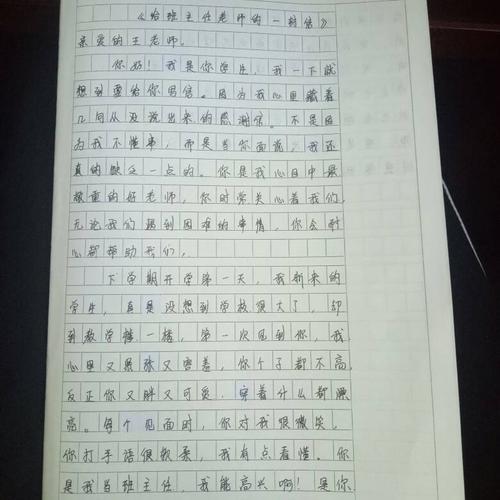 《给班主任老师的一封信》
亲爱的王老师。
你好！我是你学生，我一下就
想到要给你写信。因为我心里藏着
几句从没说出来的感谢信。不是因
为我不懂事，而是当你面说，我还
真的缺乏一点的。你是我心目中最
敬重的好老师，你时常关心着我们，
无论我们遇到困难的事情，你会耐
心都帮助我们。
下学期开学第一天，我新来的
学生，真是没想到学校很大了，却
到教学楼一楼，第一次见到你，我
心里又紧张又害羞，你个子都不高，
反正你又胖又可爱，穿着什么都漂
亮。每个见面时，你对我很微笑，
你打手语很软柔，我有点看懂。你
是我当班主任，我能高兴啊！是你